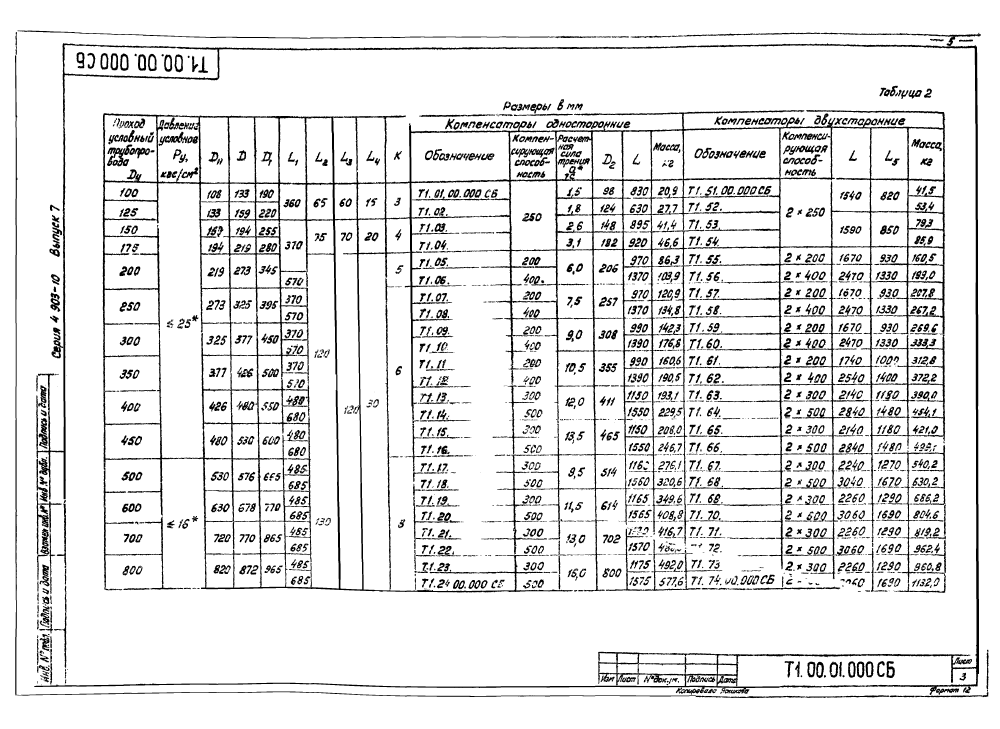 5
Т1. 00. 00. 000 СБ
Таблица 2
Размеры в мм
Проход условный трубопровода Dу | Давление условное Pу, кгс/см² | Dн | D | D₁ | L₁ | L₂ | L₃ | L₄ | K | Компенсаторы односторонние | Компенсаторы двухсторонние
Обозначение | Компенсирующая способность | Расчетная сила трения Q* тс | D₂ | L | Масса, кг | Обозначение | Компенсирующая способность | L | L₅ | Масса, кг
100 | 108 | 133 | 190 | 360 | 65 | 60 | 15 | 3 | Т1. 01. 00. 000 СБ | 250 | 1,5 | 98 | 830 | 20,9 | Т1. 51. 00. 000 СБ | 2 × 250 | 1540 | 820 | 41,5
125 | 133 | 159 | 220 | Т1. 02. | 1,8 | 124 | 630 | 27,7 | Т1. 52. | 53,4
150 | 159 | 194 | 255 | 370 | 75 | 70 | 20 | 4 | Т1. 03. | 2,6 | 148 | 895 | 41,4 | Т1. 53. | 1590 | 850 | 79,3
175 | 194 | 219 | 280 | Т1. 04. | 3,1 | 182 | 920 | 46,6 | Т1. 54. | 85,9
200 | ≤ 25* | 219 | 273 | 345 | 120 | 120 | 30 | 5 | Т1. 05. | 200 | 6,0 | 206 | 970 | 86,3 | Т1. 55. | 2 × 200 | 1670 | 930 | 160,5
570 | Т1. 06. | 400 | 1370 | 103,9 | Т1. 56. | 2 × 400 | 2470 | 1330 | 183,0
250 | 273 | 325 | 395 | 370 | 6 | Т1. 07. | 200 | 7,5 | 257 | 970 | 120,9 | Т1. 57. | 2 × 200 | 1670 | 930 | 207,8
570 | Т1. 08. | 400 | 1370 | 134,8 | Т1. 58. | 2 × 400 | 2470 | 1330 | 267,2
300 | 325 | 377 | 450 | 370 | Т1. 09. | 200 | 9,0 | 308 | 990 | 142,3 | Т1. 59. | 2 × 200 | 1670 | 930 | 269,6
570 | Т1. 10. | 400 | 1390 | 176,8 | Т1. 60. | 2 × 400 | 2470 | 1330 | 338,3
350 | 377 | 426 | 500 | 370 | Т1. 11 | 200 | 10,5 | 355 | 990 | 160,6 | Т1. 61. | 2 × 200 | 1740 | 1000 | 312,8
570 | Т1. 12 | 400 | 1390 | 190,5 | Т1. 62. | 2 × 400 | 2540 | 1400 | 372,2
400 | 426 | 480 | 550 | 480 | Т1. 13. | 300 | 12,0 | 411 | 1150 | 193,1 | Т1. 63. | 2 × 300 | 2140 | 1180 | 390,0
680 | Т1. 14. | 500 | 1550 | 229,5 | Т1. 64. | 2 × 500 | 2840 | 1480 | 454,1
450 | 480 | 530 | 600 | 480 | Т1. 15. | 300 | 13,5 | 465 | 1150 | 208,0 | Т1. 65. | 2 × 300 | 2140 | 1180 | 421,0
680 | Т1. 16. | 500 | 1550 | 246,7 | Т1. 66. | 2 × 500 | 2840 | 1480
500 | ≤ 16* | 530 | 576 | 665 | 485 | 130 | 8 | Т1. 17. | 300 | 9,5 | 514 | 1160 | 276,1 | Т1. 67. | 2 × 300 | 2240 | 1270 | 540,2
685 | Т1. 18. | 500 | 1560 | 320,6 | Т1. 68. | 2 × 500 | 3040 | 1670 | 630,2
600 | 630 | 678 | 770 | 485 | Т1. 19. | 300 | 11,5 | 614 | 1165 | 349,6 | Т1. 68. | 2 × 300 | 2260 | 1290 | 686,2
685 | Т1. 20. | 500 | 1565 | 408,8 | Т1. 70. | 2 × 500 | 3060 | 1690 | 804,6
700 | 720 | 770 | 865 | 485 | Т1. 21. | 300 | 13,0 | 702 | 416,7 | Т1. 71. | 2 × 300 | 2260 | 1290 | 819,2
685 | Т1. 22. | 500 | 1570 | 72. | 2 × 500 | 3060 | 1690 | 962,4
800 | 820 | 872 | 965 | 485 | Т1. 23. | 300 | 15,0 | 800 | 1175 | 492,0 | Т1. 73 | 2 × 300 | 2260 | 1290 | 960,8
685 | Т1. 24 00. 000 СБ | 500 | 1575 | 577,6 | Т1. 74. 00. 000 СБ | 3060 | 1690 | 1132,0
Серия 4 903-10 Выпуск 7
Инв. № подл. Подпись и дата Взамен инв. № Инв. № дубл. Подпись и дата
Изм Лист № док.им. Подпись Дата
Т1. 00. 01. 000 СБ
Лист
3
Копировала
Формат 12